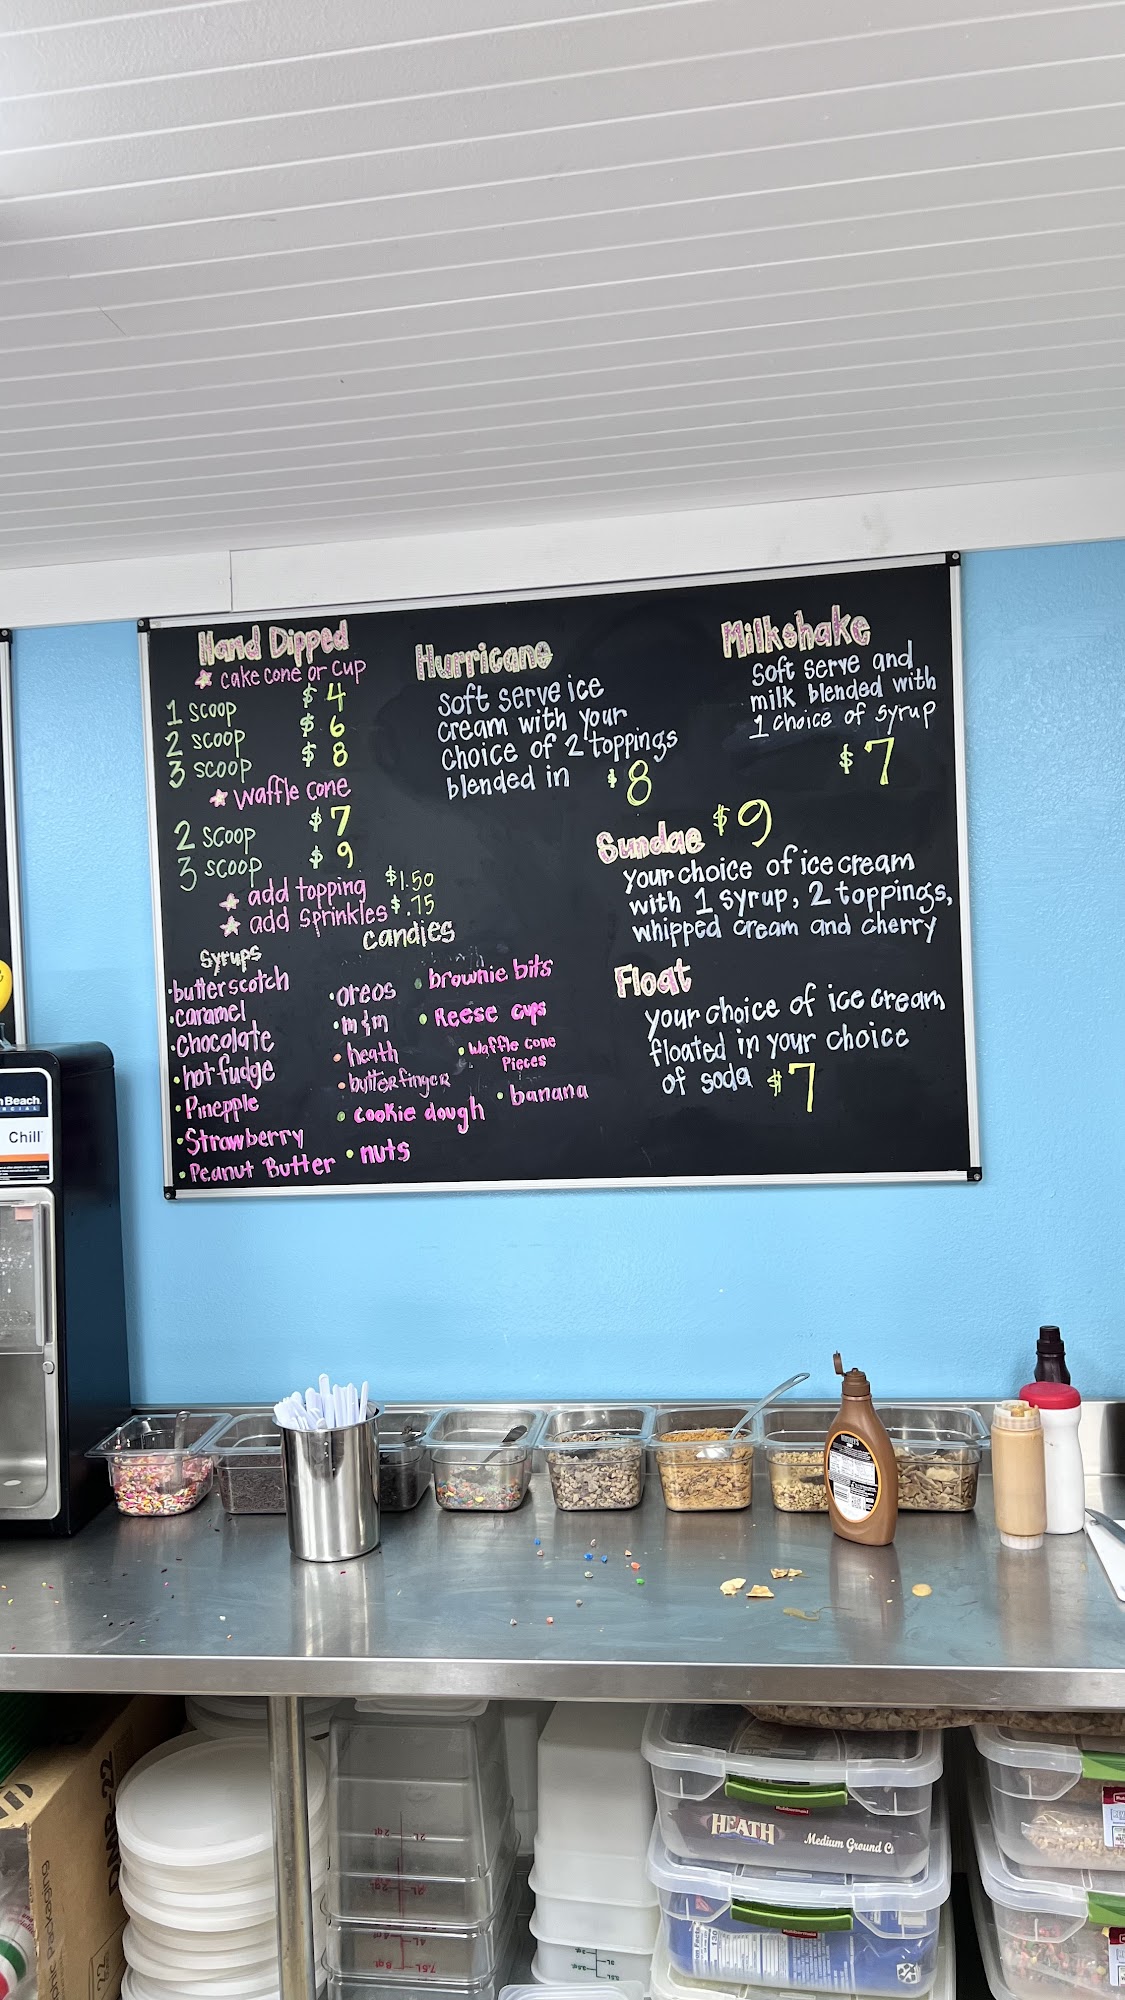 Hand Dipped
cake cone or cup
1 scoop $4
2 scoop $6
3 scoop $8
waffle cone
2 scoop $7
3 scoop $9
add topping $1.50
add sprinkles $.75
Syrups
•butterscotch
•caramel
•chocolate
•hot fudge
•Pineapple
•Strawberry
•Peanut Butter
candies
•oreos
•m&m
•heath
•butterfinger
•cookie dough
•nuts
•brownie bits
•Reese cups
•Waffle cone
Pieces
•banana
Hurricane
soft serve ice
cream with your
choice of 2 toppings
blended in $8
Milkshake
soft serve and
milk blended with
1 choice of syrup
$7
Sundae $9
your choice of ice cream
with 1 syrup, 2 toppings,
whipped cream and cherry
Float
your choice of ice cream
floated in your choice
of soda $7
Beach
Chill
HEATH
Medium Ground